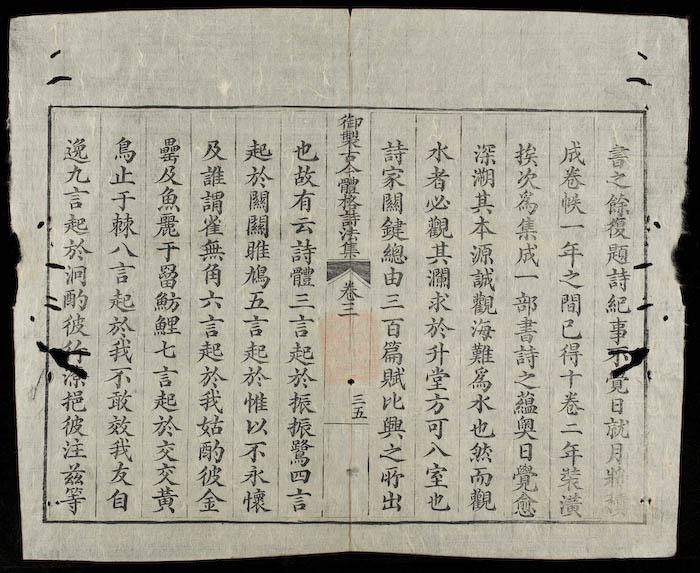 書之餘復題詩紀事不覺日就月將積
成卷帙一年之間已得十卷二年裝潢
挨次爲集成一部書詩之蘊奥日覺愈
深溯其本源誠觀海難爲水也然而觀
水者必觀其瀾求於升堂方可入室也
詩家關鍵總由三百篇賦比興之所出
御製古今體格詩法集
卷三
三五
也故有云詩體三言起於振振鷺四言
起於關關雎鳩五言起於惟以不永懷
及誰謂雀無角六言起於我姑酌彼金
罍及魚麗于罶魴鯉七言起於交交黃
鳥止于棘八言起於我不敢效我友自
逸九言起於泂酌彼行潦挹彼注茲等